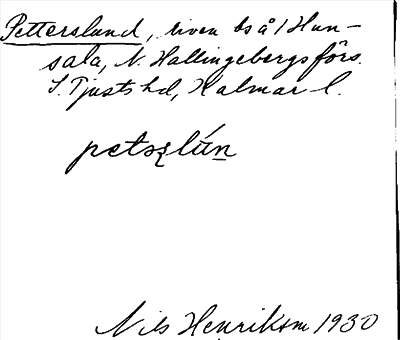 Pettersland, riven bs å / Hun-
sala, N. Hallingebergs förs.
S. Tjusts hd, Kalmar l.
petsʂlún
Nils Henrikson 1930